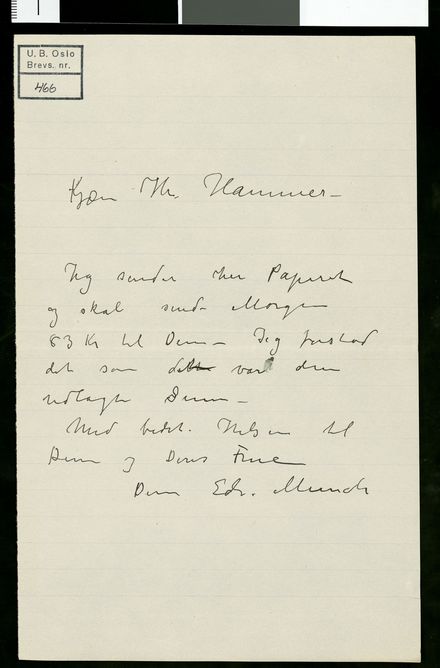 U. B. Oslo
Brevs. nr.
466
Kjære Hr. Hammer –
Jeg sender her Papiret
og skal sende Morgen
83 Kr til Dem – Jeg forstod
det som dette var den
udlagte Sum –
Med bedst. Hilsen til
Dem og Deres Frue
Deres Edv. Munch